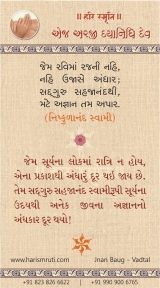 ॥ હરિ સ્મૃતિ ॥
એજ અરજી દયાનિધિ દેવ
જેમ રવિમાં રજની નહિ,
નહિ ઉજાસે અંધાર;
સદ્ગુરુ સહજાનંદથી,
મટે અજ્ઞાન તમ અપાર.
(નિષ્કુળાનંદ સ્વામી)
જેમ સૂર્યના લોકમાં રાત્રિ ન હોય,
એના પ્રકાશથી અંધારું દૂર થઈ જાય છે.
તેમ સદ્ગુરુ સહજાનંદ સ્વામીરૂપી સૂર્યના
ઉદયથી અનેક જીવના અજ્ઞાનનો
અંધકાર દૂર થયો!
www.harismruti.com
Jnan Baug - Vadtal
+91 823 826 6622 | +91 97900 6765